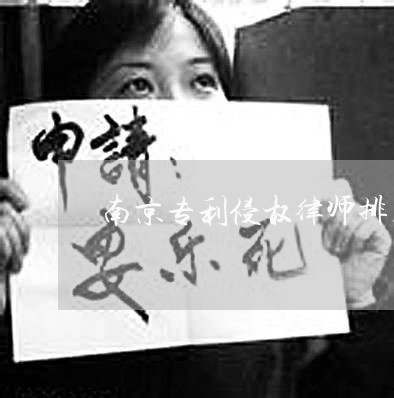 申請：
南京专利侵权律师排
安乐死